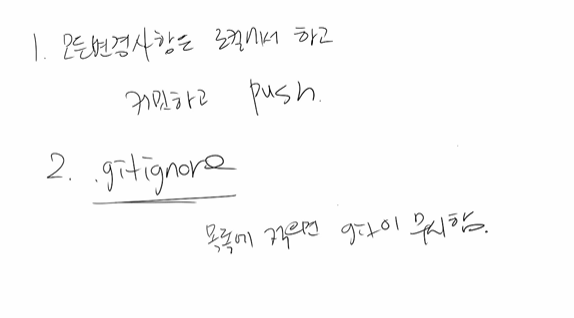 1. 모든변경사항은 로컬에서 하고
커밋하고 push.
2. .gitignore
목록에 적으면 git이 무시함.